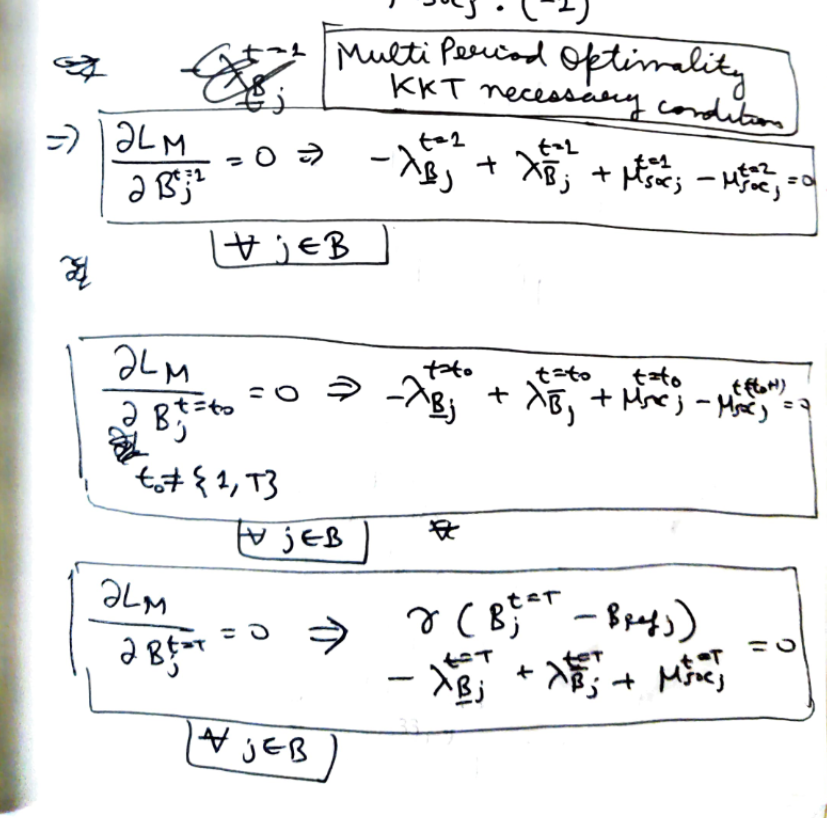 μ_soc_j · (-1)
⇒
Multi Period Optimality
KKT necessary conditions
⇒ ∂L_M / ∂B_j^{t=1} = 0 ⇒ -λ_{B̲_j}^{t=1} + λ_{B̅_j}^{t=1} + μ_{soc_j}^{t=1} - μ_{soc_j}^{t=2} = 0
∀ j ∈ B
∂L_M / ∂B_j^{t=t₀} = 0 ⇒ -λ_{B̲_j}^{t=t₀} + λ_{B̅_j}^{t=t₀} + μ_{soc_j}^{t=t₀} - μ_{soc_j}^{t=(t₀+1)} = 0
t₀ ≠ {1, T}
∀ j ∈ B
∂L_M / ∂B_j^{t=T} = 0 ⇒ γ (B_j^{t=T} - B_{ref_j})
- λ_{B̲_j}^{t=T} + λ_{B̅_j}^{t=T} + μ_{soc_j}^{t=T} = 0
∀ j ∈ B